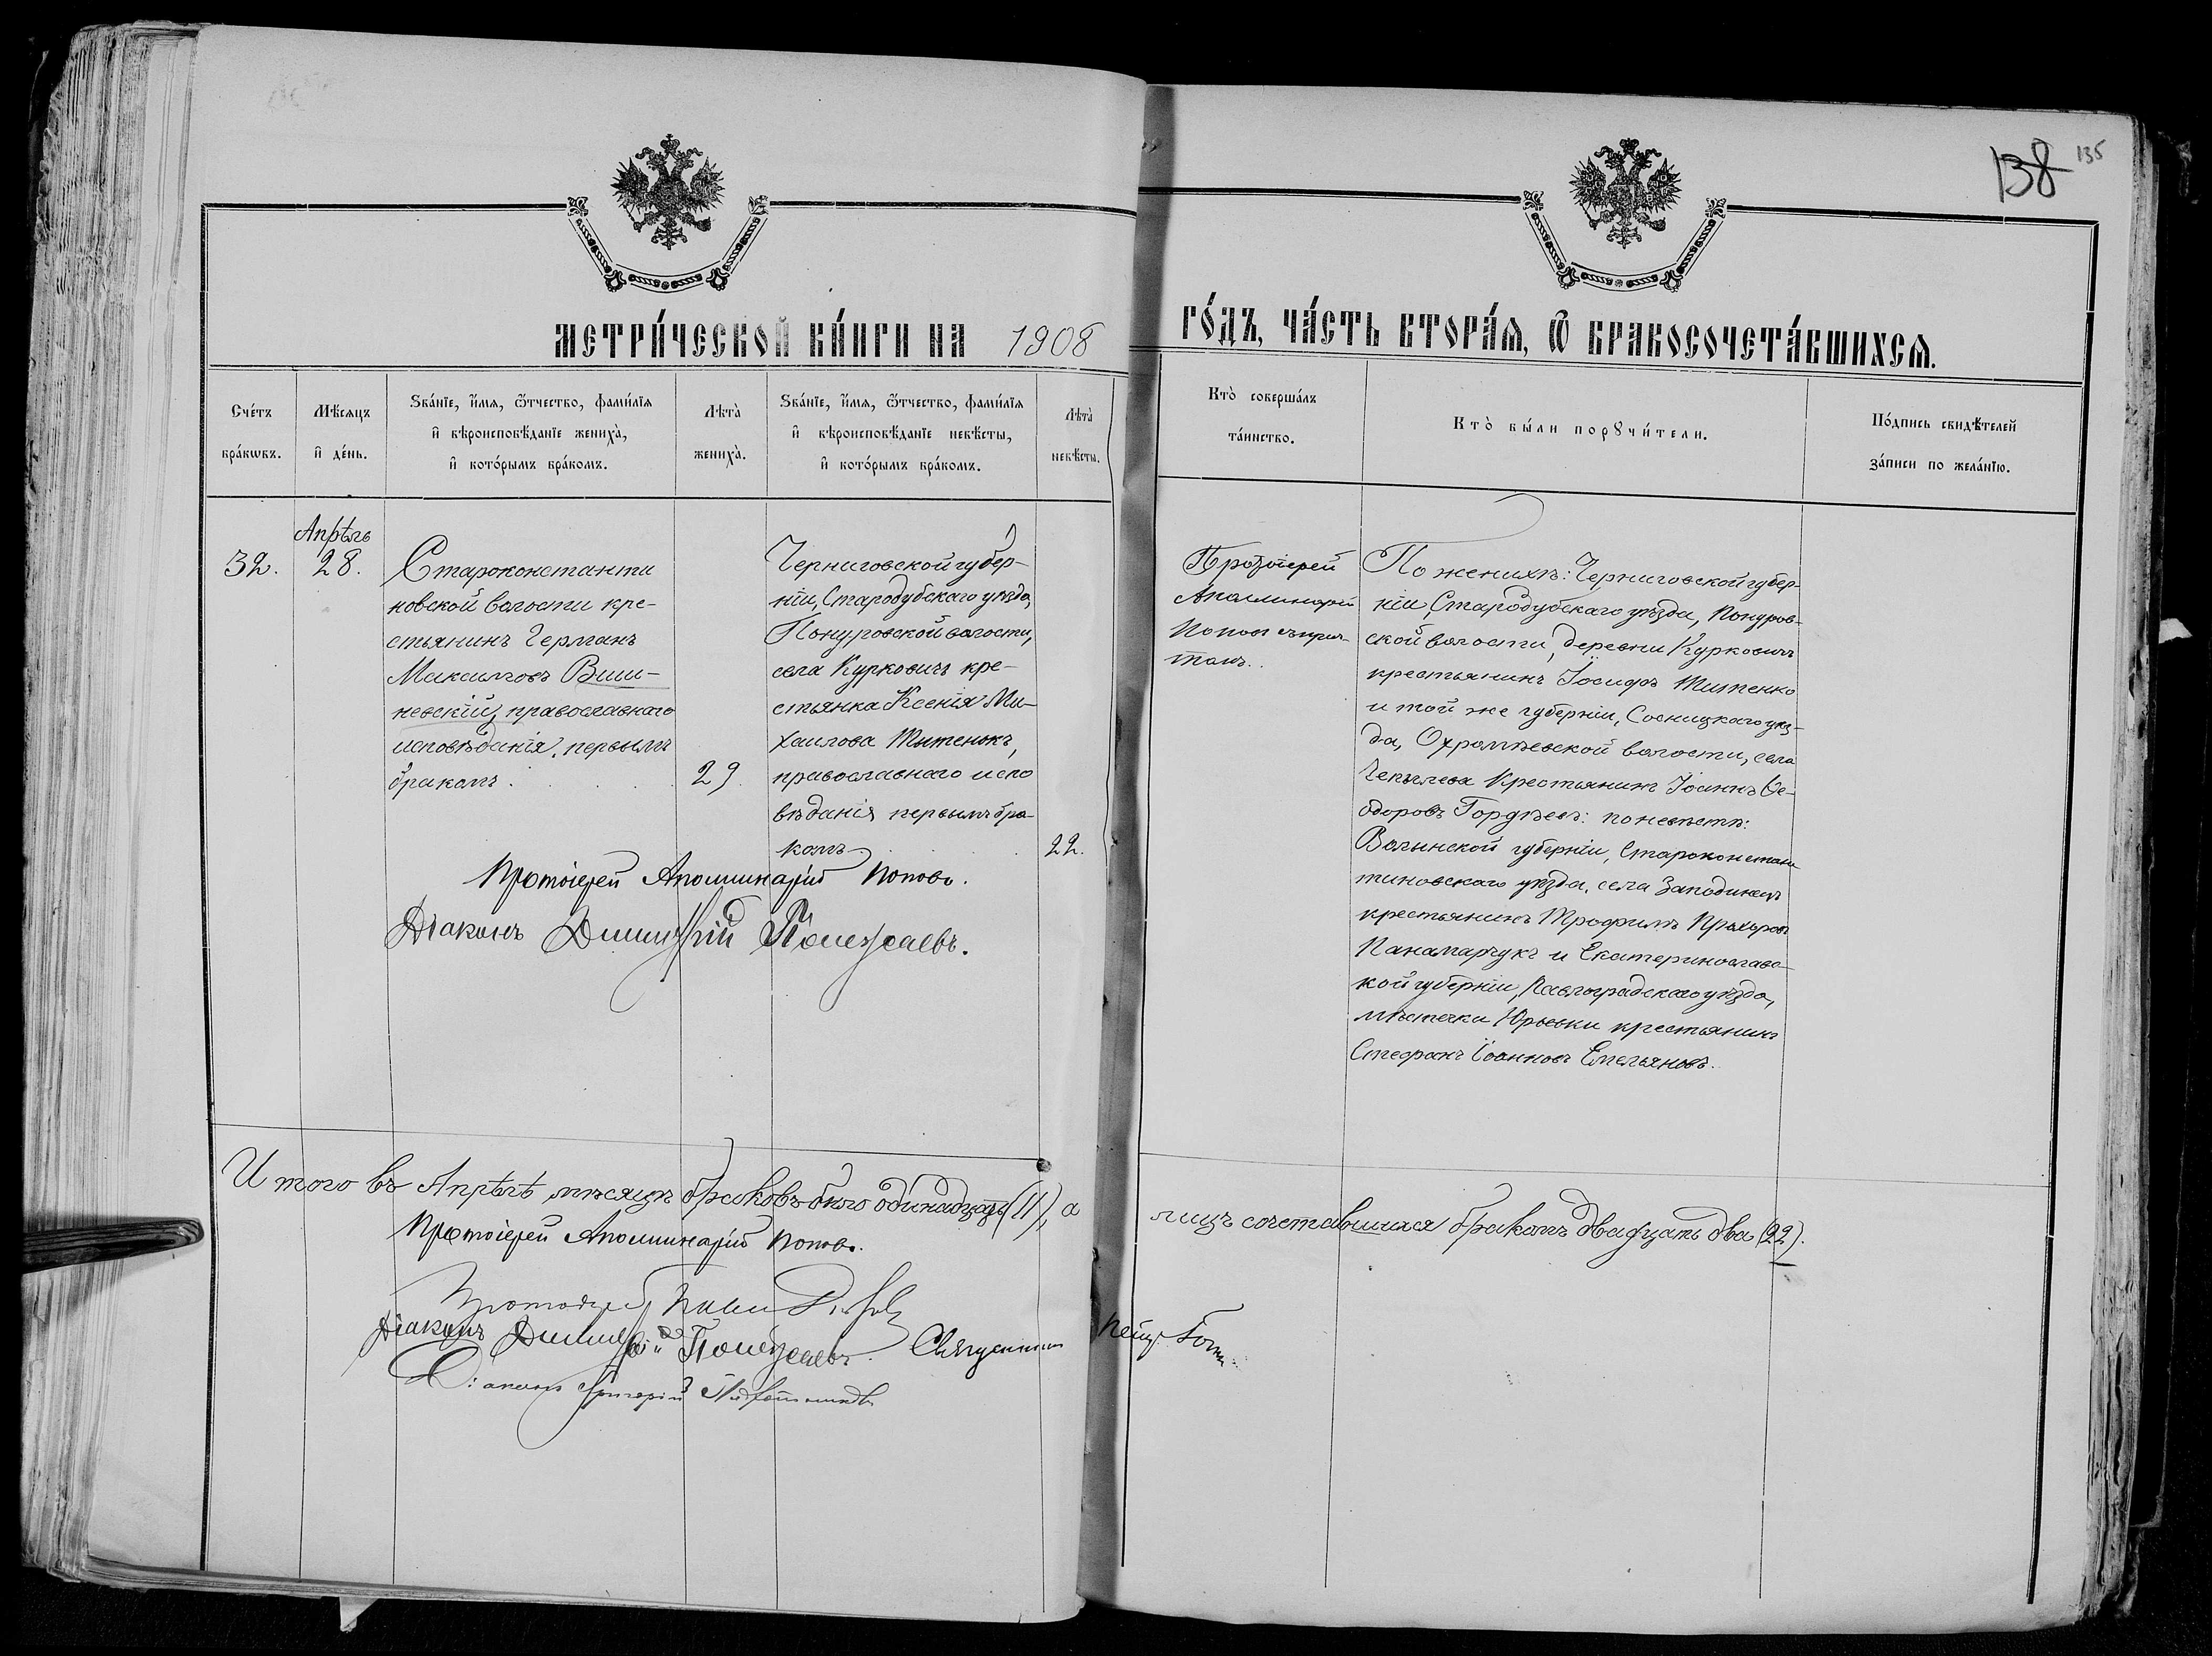 138 135
МЕТРИ́ЧЕСКОЙ КНИ́ГИ НА 1908 ГО́ДЪ, ЧА́СТЬ ВТОРА́Я, Ѿ БРАКОСОЧЕТА́ВШИХСЯ.
Сче́тъ
бра́кѡвъ.
Мѣ́сяцъ
и҆ де́нь.
Ѕва́нїе, и҆́мя, ѻ҆́тчество, фами́лїя
и҆ вѣроисповѣ́данїе жениха̀,
и҆ кото́рымъ бра́комъ.
Лѣта̀
жениха̀.
Ѕва́нїе, и҆́мя, ѻ҆́тчество, фами́лїя
и҆ вѣроисповѣ́данїе невѣ́сты,
и҆ кото́рымъ бра́комъ.
Лѣта̀
невѣ́сты.
Кто̀ соверша́лъ
та́инство.
Кто̀ бы́ли порꙋчи́тели.
По́дпись свидѣ́телей
за́писи по жела́нїю.
32.
Апрѣль
28.
Староконстанти
новской волости кре-
стьянинъ Германъ
Максимовъ Виш-
невскій, православнаго
исповѣданія, первымъ
бракомъ.
29.
Черниговской губер-
ніи, Стародубскаго уѣзда,
Понуровской волости,
села Курковичъ кре-
стьянка Ксенія Ми-
хаилова Тытенокъ,
православнаго испо
вѣданія первымъ бра-
комъ.
22.
Протоіерей
Аполлинарій
Поповъ съ прич-
томъ.
По женихѣ: Черниговской губер-
ніи, Стародубскаго уѣзда, Понуров-
ской волости, деревни Курковичъ
крестьянинъ Іосифъ Титенко
и той же губерніи, Сосницкаго уѣз-
да, Охрамѣевской волости, села
крестьянинъ Іоаннъ Ѳе-
одоровъ Гордѣевъ: по невѣстѣ:
Волынской губерніи, Староконстан
тиновскаго уѣзда, села
крестьянинъ Трофимъ Прохоровъ
Панамарчукъ и Екатеринославс-
кой губерніи, Павлоградскаго уѣзда,
мѣстечка Юрьевки крестьянинъ
Стефанъ Іоанновъ Емельяновъ.
Протоіерей Аполлинарій Поповъ.
Діаконъ Димитрій
Итого въ Апрѣлѣ мѣсяцѣ браковъ было одинадцать (11), а лицъ сочетавшихся бракомъ двадцать два (22).
Протоіерей Аполлинарій Поповъ.
Протоіерей
Діаконъ Димитрій
Священникъ Петръ
Діаконъ Григорій